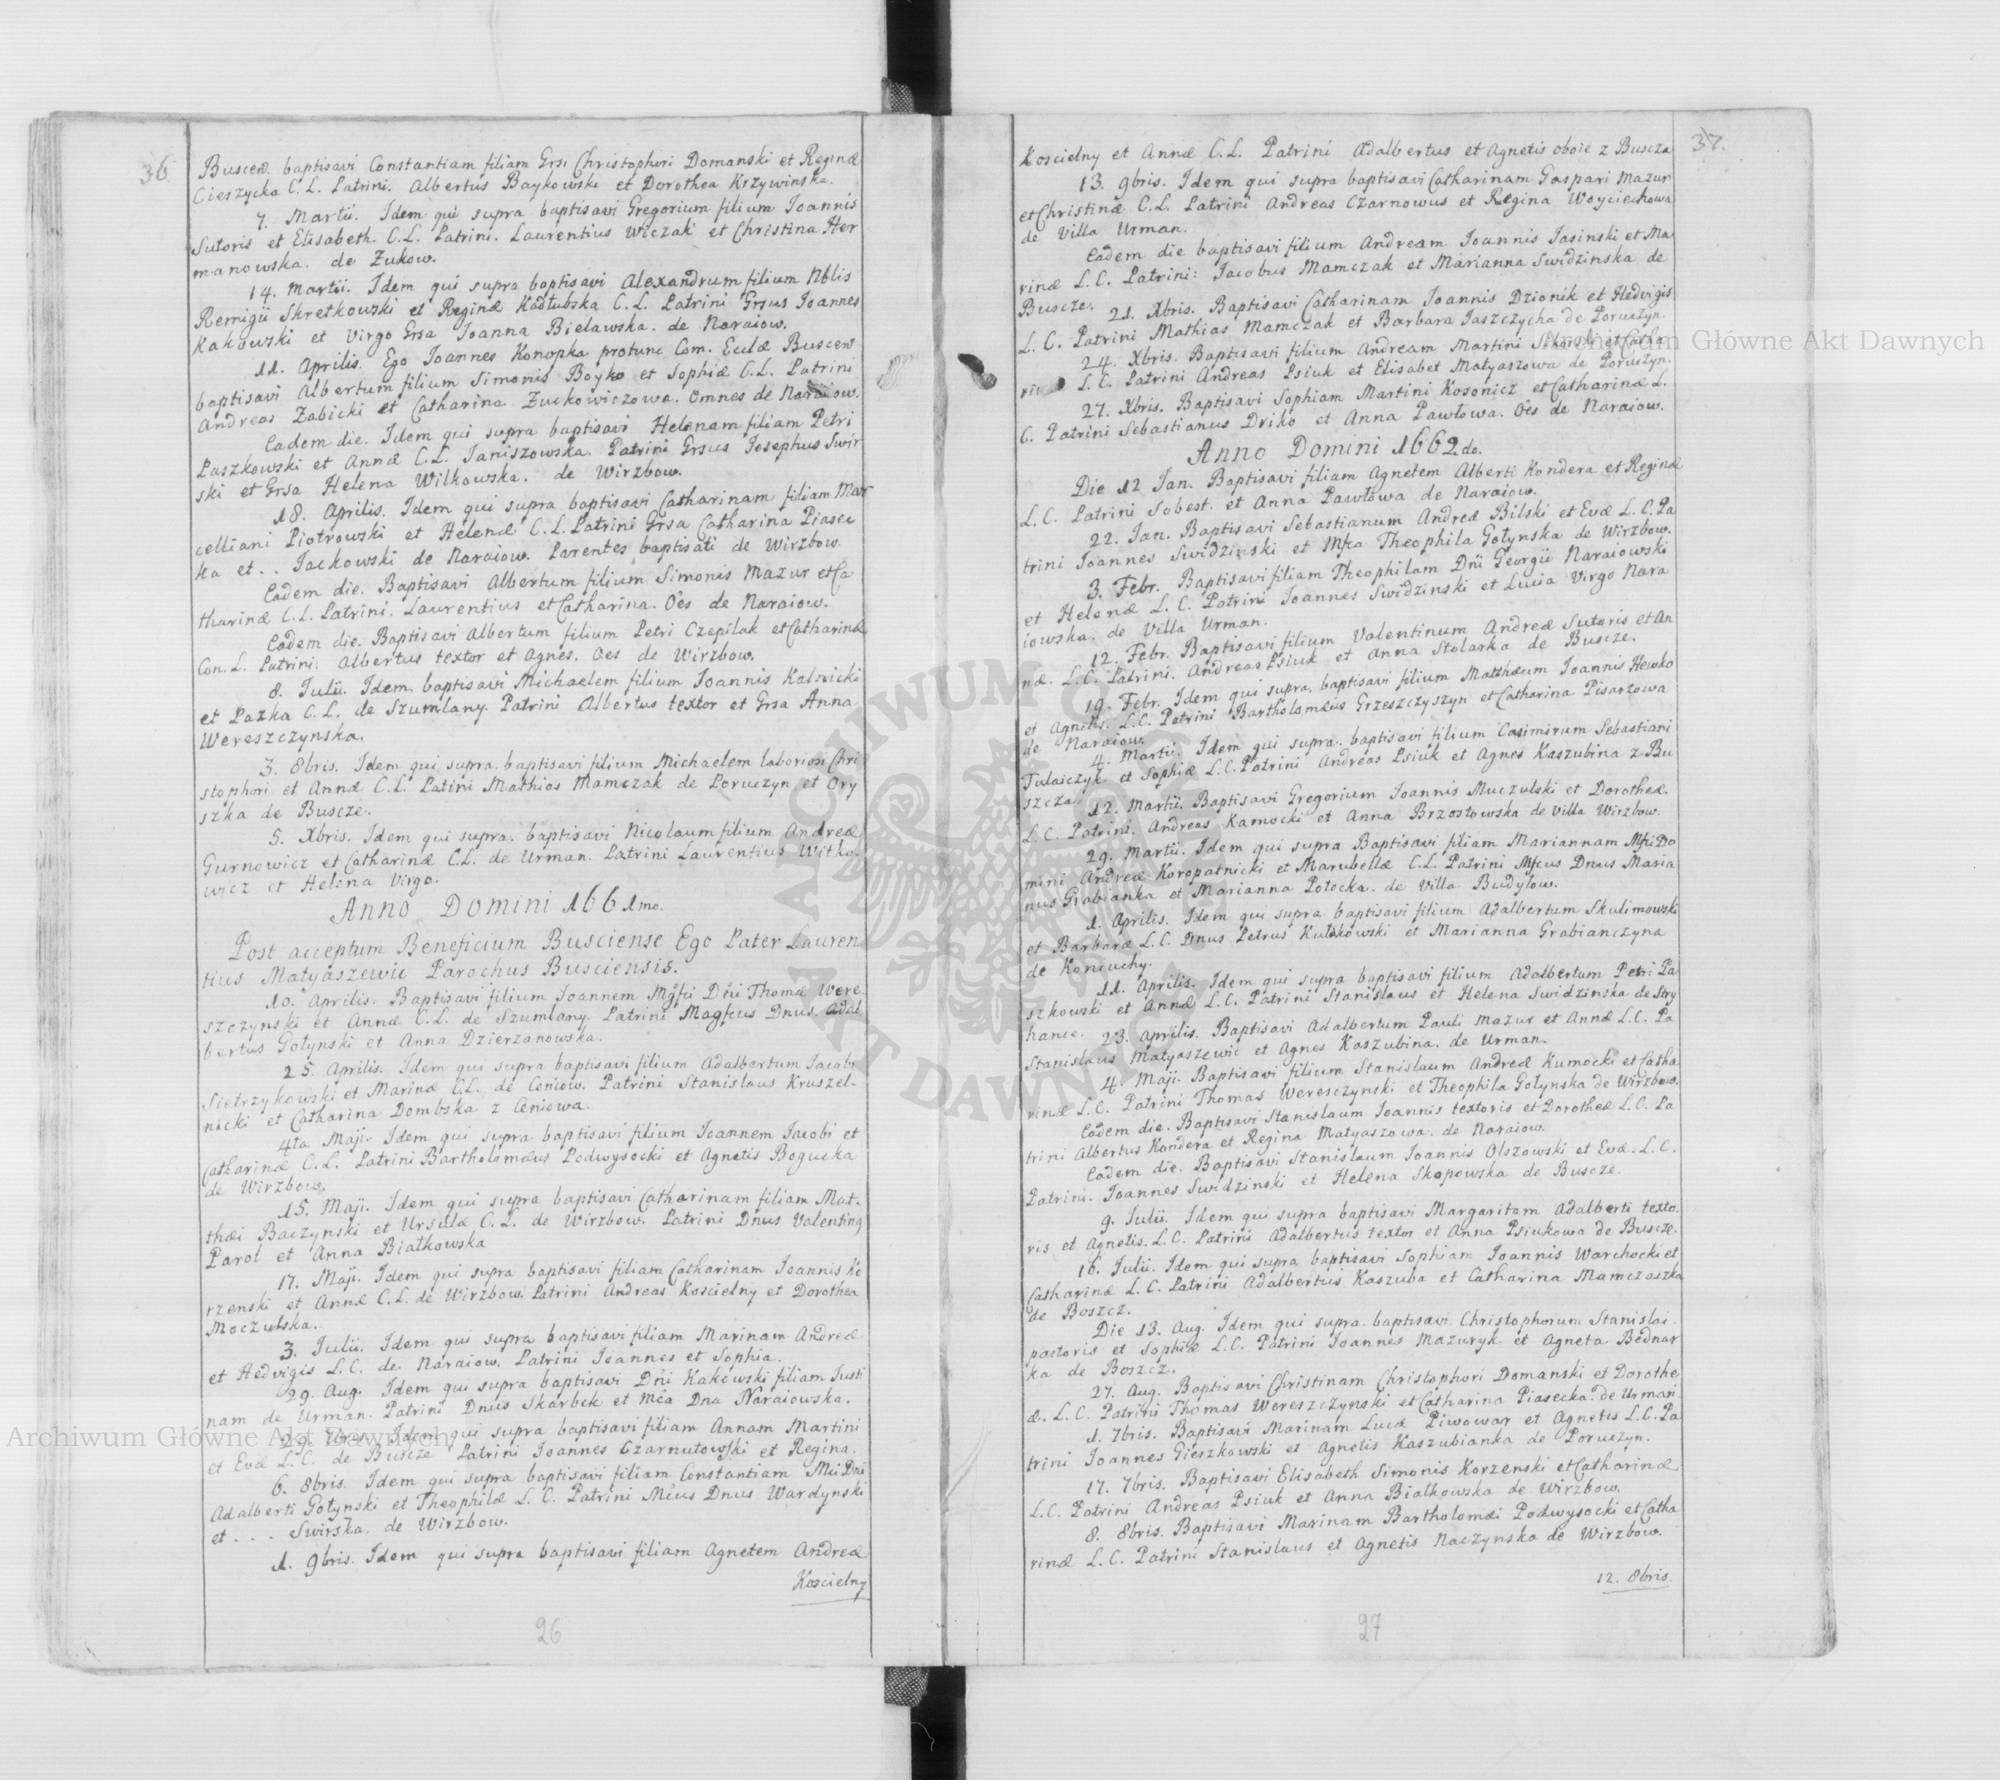 36.
Buscen. baptisavi Constantiam filiam Grsi Christophori Domanski et Reginæ
Cieszycka C.L. Patrini. Albertus Baykowski et Dorothea Krzywinska.
7. Martii. Idem qui supra baptisavi Gregorium filium Ioannis
Sutoris et Elisabeth. C.L. Patrini. Laurentius Wiczak et Christina Her
manowska. de Zukow.
14. Martii. Idem qui supra baptisavi Alexandrum filium Nblis
Remigii Skretkowski et Reginæ Kadłubska C.L. Patrini Grsus Ioannes
Kakowski et Virgo Grsa Ioanna Bielawska. de Naraiow.
11. Aprilis. Ego Ioannes Konopka protunc Com. Eccłæ Buscen
baptisavi Albertum filium Simonis Boyko et Sophiæ C.L. Patrini
Andreas Zabicki et Catharina Zuckowiczowa. Omnes de Naraiow.
Eadem die. Idem qui supra baptisavi Helenam filiam Petri
Paszkowski et Annæ C.L. Janiszowska. Patrini Grsus Iosephus Swir
ski et Grsa Helena Wilkowska. de Wirzbow.
18. Aprilis. Idem qui supra baptisavi Catharinam filiam Mar
celliani Piotrowski et Helenæ C.L. Patrini Grsa Catharina Piasec
ka et . . Jackowski de Naraiow. Parentes baptisati de Wirzbow.
Eadem die. Baptisavi Albertum filium Simonis Mazur et Ca
tharinæ C.L. Patrini. Laurentius et Catharina. Oes de Naraiow.
Eadem die. Baptisavi Albertum filium Petri Czepilak et Catharinæ
Con. L. Patrini: Albertus textor et Agnes. Oes de Wirzbow.
8. Iulii. Idem baptisavi Michaelem filium Ioannis Kalnicki
et Pazka C.L. de Szumlany. Patrini Albertus textor et Grsa Anna
Wereszczynska.
3. 8bris. Idem qui supra baptisavi filium Michaelem laboriosi Chri
stophori et Annæ C.L. Patini Mathias Mamczak de Poruczyn et Ory
szka de Buscze.
5. Xbris. Idem qui supra. baptisavi Nicolaum filium Andreæ
Gurnowicz et Catharinæ C.L. de Urman. Patrini Laurentius Witko-
wicz et Helena Virgo.
Anno Domini 1661mo.
Post acceptum Beneficium Busciense Ego Pater Lauren
tius Matyaszewic Parochus Busciensis.
10. Aprilis. Baptisavi filium Ioannem Mgfii Dni Thomæ Were
szczynski et Annæ C.L. de Szumlany. Patrini Magfcus Dnus Adal
bertus Gołynski et Anna Dzierzanowska.
25. Aprilis. Idem qui supra baptisavi filium Adalbertum Iacobi
Sietrzykowski et Marinæ C.L. de Ceniow. Patrini Stanislaus Kruszel-
nicki et Catharina Dombska z Ceniowa.
4ta Maji. Idem qui supra baptisavi filium Ioannem Iacobi et
Catharinæ C.L. Patrini Bartholomæus Podwysocki et Agnetis Bogucka
de Wirzbow.
15. Maji. Idem qui supra baptisavi Catharinam filiam Mat-
thæi Baczynski et Ursulæ C.L. de Wirzbow. Patrini Dnus Valenting
Parol et Anna Białkowska
17. Maji. Idem qui supra baptisavi filiam Catharinam Ioannis Ko
rzenski et Annæ C.L. de Wirzbow. Patrini Andreas Koscielny et Dorothea
Moczulska.
3. Iulii. Idem qui supra baptisavi filiam Marinam Andreæ
et Hedvigis L.C. de Naraiow. Patrini Ioannes et Sophia.
29. Aug. Idem qui supra baptisavi Dni Kakowski filiam Iusti
nam de Urman. Patrini Dnus Skarbek et Mca Dna Naraiowska.
29. 7bres. Idem qui supra baptisavi filiam Annam Martini
et Evæ L.C. de Buscze Patrini Ioannes Czarnutowski et Regina.
6. 8bris. Idem qui supra baptisavi filiam Constantiam Mci Dni
Adalberti Gołynski et Theophilæ L.C. Patrini Mcus Dnus Wardynski
et . . . Swirska. de Wirzbow.
1. 9bris. Idem qui supra baptisavi filiam Agnetem Andreæ
Koscielny
26
37.
Koscielny et Annæ C.L. Patrini Adalbertus et Agnetis oboie z Buscza
13. 9bris. Idem qui supra baptisavi Catharinam Gaspari Mazur
et Christinæ C.L. Patrini Andreas Czarnowus et Regina Woyciechowa
de Villa Urman.
Eadem die baptisavi filium Andream Ioannis Iasinski et Ma
rinæ L.C. Patrini: Jacobus Mamczak et Marianna Swidzinska de
Buscze. 21. Xbris. Baptisavi Catharinam Ioannis Dzionik et Hedvigis
L.C. Patrini Mathias Mamczak et Barbara Jaszczycha de Poruczyn.
24. Xbris. Baptisavi filium Andream Martini et Catha
L.C. Patrini Andreas Psiuk et Elisabet Matyaszowa de Poruczyn.
27. Xbris. Baptisavi Sophiam Martini Kosonicz et Catharinæ L.
C. Patrini Sebastianus Driko et Anna Pawłowa. Oes de Naraiow.
Anno Domini 1662do.
Die 12 Ian. Baptisavi filiam Agnetem Alberti Kondera et Reginæ
L.C. Patrini Sobest. et Anna Pawłowa de Naraiow.
22. Ian. Baptisavi Sebastianum Andreæ Bilski et Evæ L.C. Pa
trini Ioannes Swidzinski et Mfca Theophila Gołynska de Wirzbow.
3. Febr. Baptisavi filiam Theophilam Dni Georgii Naraiowski
et Helenæ L.C. Patrini Ioannes Swidzinski et Lucia Virgo Nara
iowska. de Villa Urman.
12. Febr. Baptisavi filium Valentinum Andreæ Sutoris et An
næ. L.C. Patrini. Andreas Psiuk et Anna Stolarka de Buscze.
19. Febr. Idem qui supra. baptisavi filium Matthæum Ioannis Hewko
et Agnetis. L.C. Patrini Bartholomæus Grzeszczyszyn et Catharina Pisarzowa
de Naraiow.
4. Martii. Idem qui supra. baptisavi filium Casimirum Sebastiani
Tulaiczyk et Sophiæ L.C. Patrini Andreas Psiuk et Agnes Kaszubina z Bu
szcza. 12. Martii. Baptisavi Gregorium Ioannis Muczulski et Dorotheæ
L.C. Patrini. Andreas Kamocki et Anna Brzostowska de Villa Wirzbow.
29. Martii. Idem qui supra Baptisavi filiam Mariannam Mfci Do
mini Andreæ Koropatnicki et Marubellæ C.L. Patrini Mfcus Dnus Maria
nus Grabianka et Marianna Potocka. de Villa Budyłow.
1. Aprilis. Idem qui supra baptisavi filium Adalbertum Skulimowski
et Barbaræ L.C. Dnus Petrus Kułakowski et Marianna Grabianczyna
de Koniuchy.
11. Aprilis. Idem qui supra baptisavi filium Adalbertum Petri Pa
szkowski et Annæ L.C. Patrini Stanislaus et Helena Swidzinska de Stry
hance. 23. Aprilis. Baptisavi Adalbertum Pauli Mazur et Annæ L.C. Pa
Stanislaus Matyaszewic et Agnes Kaszubina. de Urman.
4. Maji. Baptisavi filium Stanislaum Andreæ Kumocki et Catha
rinæ L.C. Patrini Thomas Weresczynski et Theophila Gołynska de Wirzbow.
Eadem die. Baptisavi Stanislaum Ioannis textoris et Dorotheæ L.C. Pa
trini Albertus Kondera et Regina Matyaszowa. de Naraiow.
Eadem die. Baptisavi Stanislaum Ioannis Olszowski et Evæ. L.C.
Patrini. Ioannes Swidzinski et Helena Skopowska de Buscze.
9. Iulii. Idem qui supra baptisavi Margaritam Adalberti texto.
ris et Agnetis. L.C. Patrini Adalbertus textor et Anna Psiukowa de Buscze.
16. Iulii. Idem qui supra baptisavi Sophiam Ioannis Warchocki et
Catharinæ L.C. Patrini Adalbertus Kaszuba et Catharina Mamczaszka
de Boszcz.
Die 13. Aug. Idem qui supra. baptisavi Christophorum Stanislai
pastoris et Sophiæ L.C. Patrini Ioannes Mazuryk et Agneta Bednar
ka de Boszcz.
27. Aug. Baptisavi Christinam Christophori Domanski et Dorothe
æ. L.C. Patrini Thomas Wereszczynski et Catharina Piasecka. de Urman.
1. 7bris. Baptisavi Marinam Lucæ Piwowar et Agnetis L.C. Pa
trini Ioannes Gieszkowski et Agnetis Kaszubianka de Poruczyn.
17. 7bris. Baptisavi Elisabeth Simonis Korzenski et Catharinæ
L.C. Patrini Andreas Psiuk et Anna Białkowska de Wirzbow.
8. 8bris. Baptisavi Marinam Bartholomæi Podwysocki et Catha
rinæ L.C. Patrini Stanislaus et Agnetis Naczynska de Wirzbow.
12. 8bris.
27
Archiwum Główne Akt Dawnych
Archiwum Główne Akt Dawnych
ARCHIWUM GŁÓWNE AKT DAWNYCH